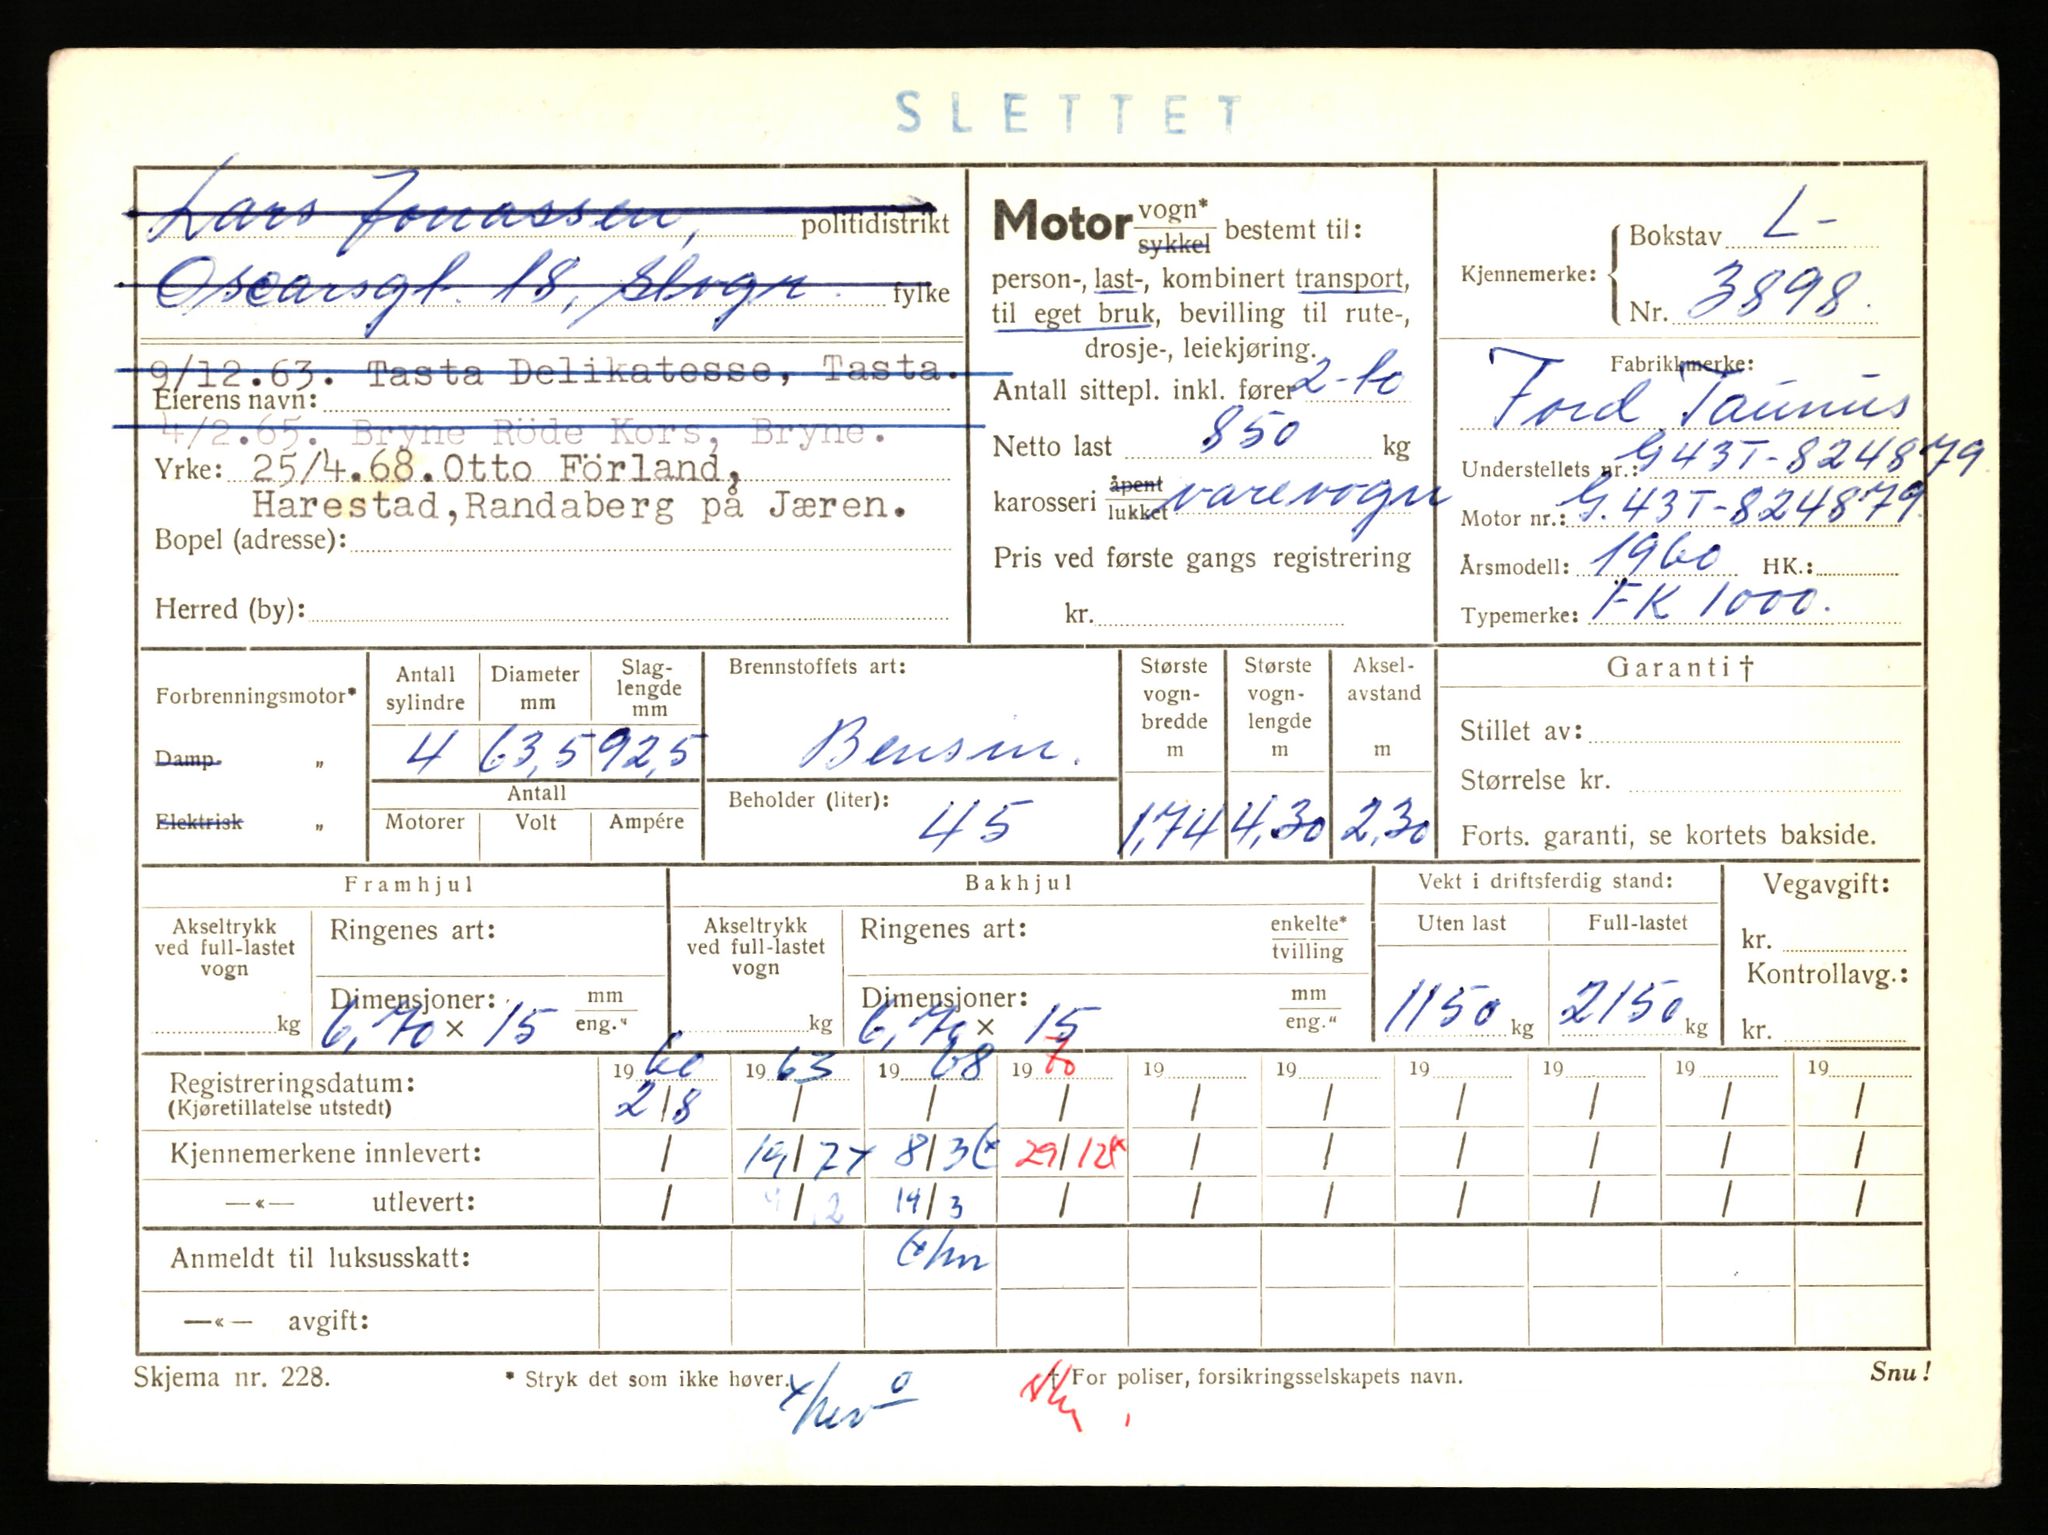 SLETTET
Lars Jonassen, politidistrikt
Oscarsgt. 18, Stvgr. fylke
9/12.63. Tasta Delikatesse, Tasta.
Eierens navn:
4/2.65. Bryne Röde Kors, Bryne.
Yrke: 25/4.68. Otto Förland,
Harestad, Randaberg på Jæren.
Bopel (adresse):
Herred (by):
Motor vogn* sykkel bestemt til:
person-, last-, kombinert transport,
til eget bruk, bevilling til rute-,
drosje-, leiekjøring.
Antall sittepl. inkl. fører 2-to
Netto last 850 kg
karosseri åpent lukket varevogn
Pris ved første gangs registrering
kr.
Kjennemerke: { Bokstav L-
Nr. 3898.
Fabrikkmerke:
Ford Taunus
Understellets nr.: G43T-824879
Motor nr.: G.43T-824879
Årsmodell: 1960 HK.:
Typemerke: FK 1000.
Forbrenningsmotor*
Damp. „
Elektrisk „
Antall sylindre 4
Diameter mm 63,5
Slag-lengde mm 92,5
Antall
Motorer Volt Ampére
Brennstoffets art:
Bensin.
Beholder (liter): 45
Største vogn-bredde m 1,74
Største vogn-lengde m 4,30
Aksel-avstand m 2,30
Garanti †
Stillet av:
Størrelse kr.
Forts. garanti, se kortets bakside.
Framhjul
Akseltrykk ved full-lastet vogn
kg
Ringenes art:
Dimensjoner: mm eng."
6,70 × 15
Bakhjul
Akseltrykk ved full-lastet vogn
kg
Ringenes art: enkelte* tvilling
Dimensjoner: mm eng."
6,70 × 15
Vekt i driftsferdig stand:
Uten last Full-lastet
1150 kg 2150 kg
Vegavgift:
kr.
Kontrollavg.:
kr.
Registreringsdatum: 1960 1963 1968 1970 19 19 19 19 19 19
(Kjøretillatelse utstedt) 2/8 / / / / / / / / /
Kjennemerkene innlevert: / 19/7 x 8/3 (x 29/12 x / / / / / /
—«— utlevert: / 4/2 14/3 / / / / / / /
Anmeldt til luksusskatt:
—«— avgift:
Skjema nr. 228.
* Stryk det som ikke høver.
† For poliser, forsikringsselskapets navn.
Snu!